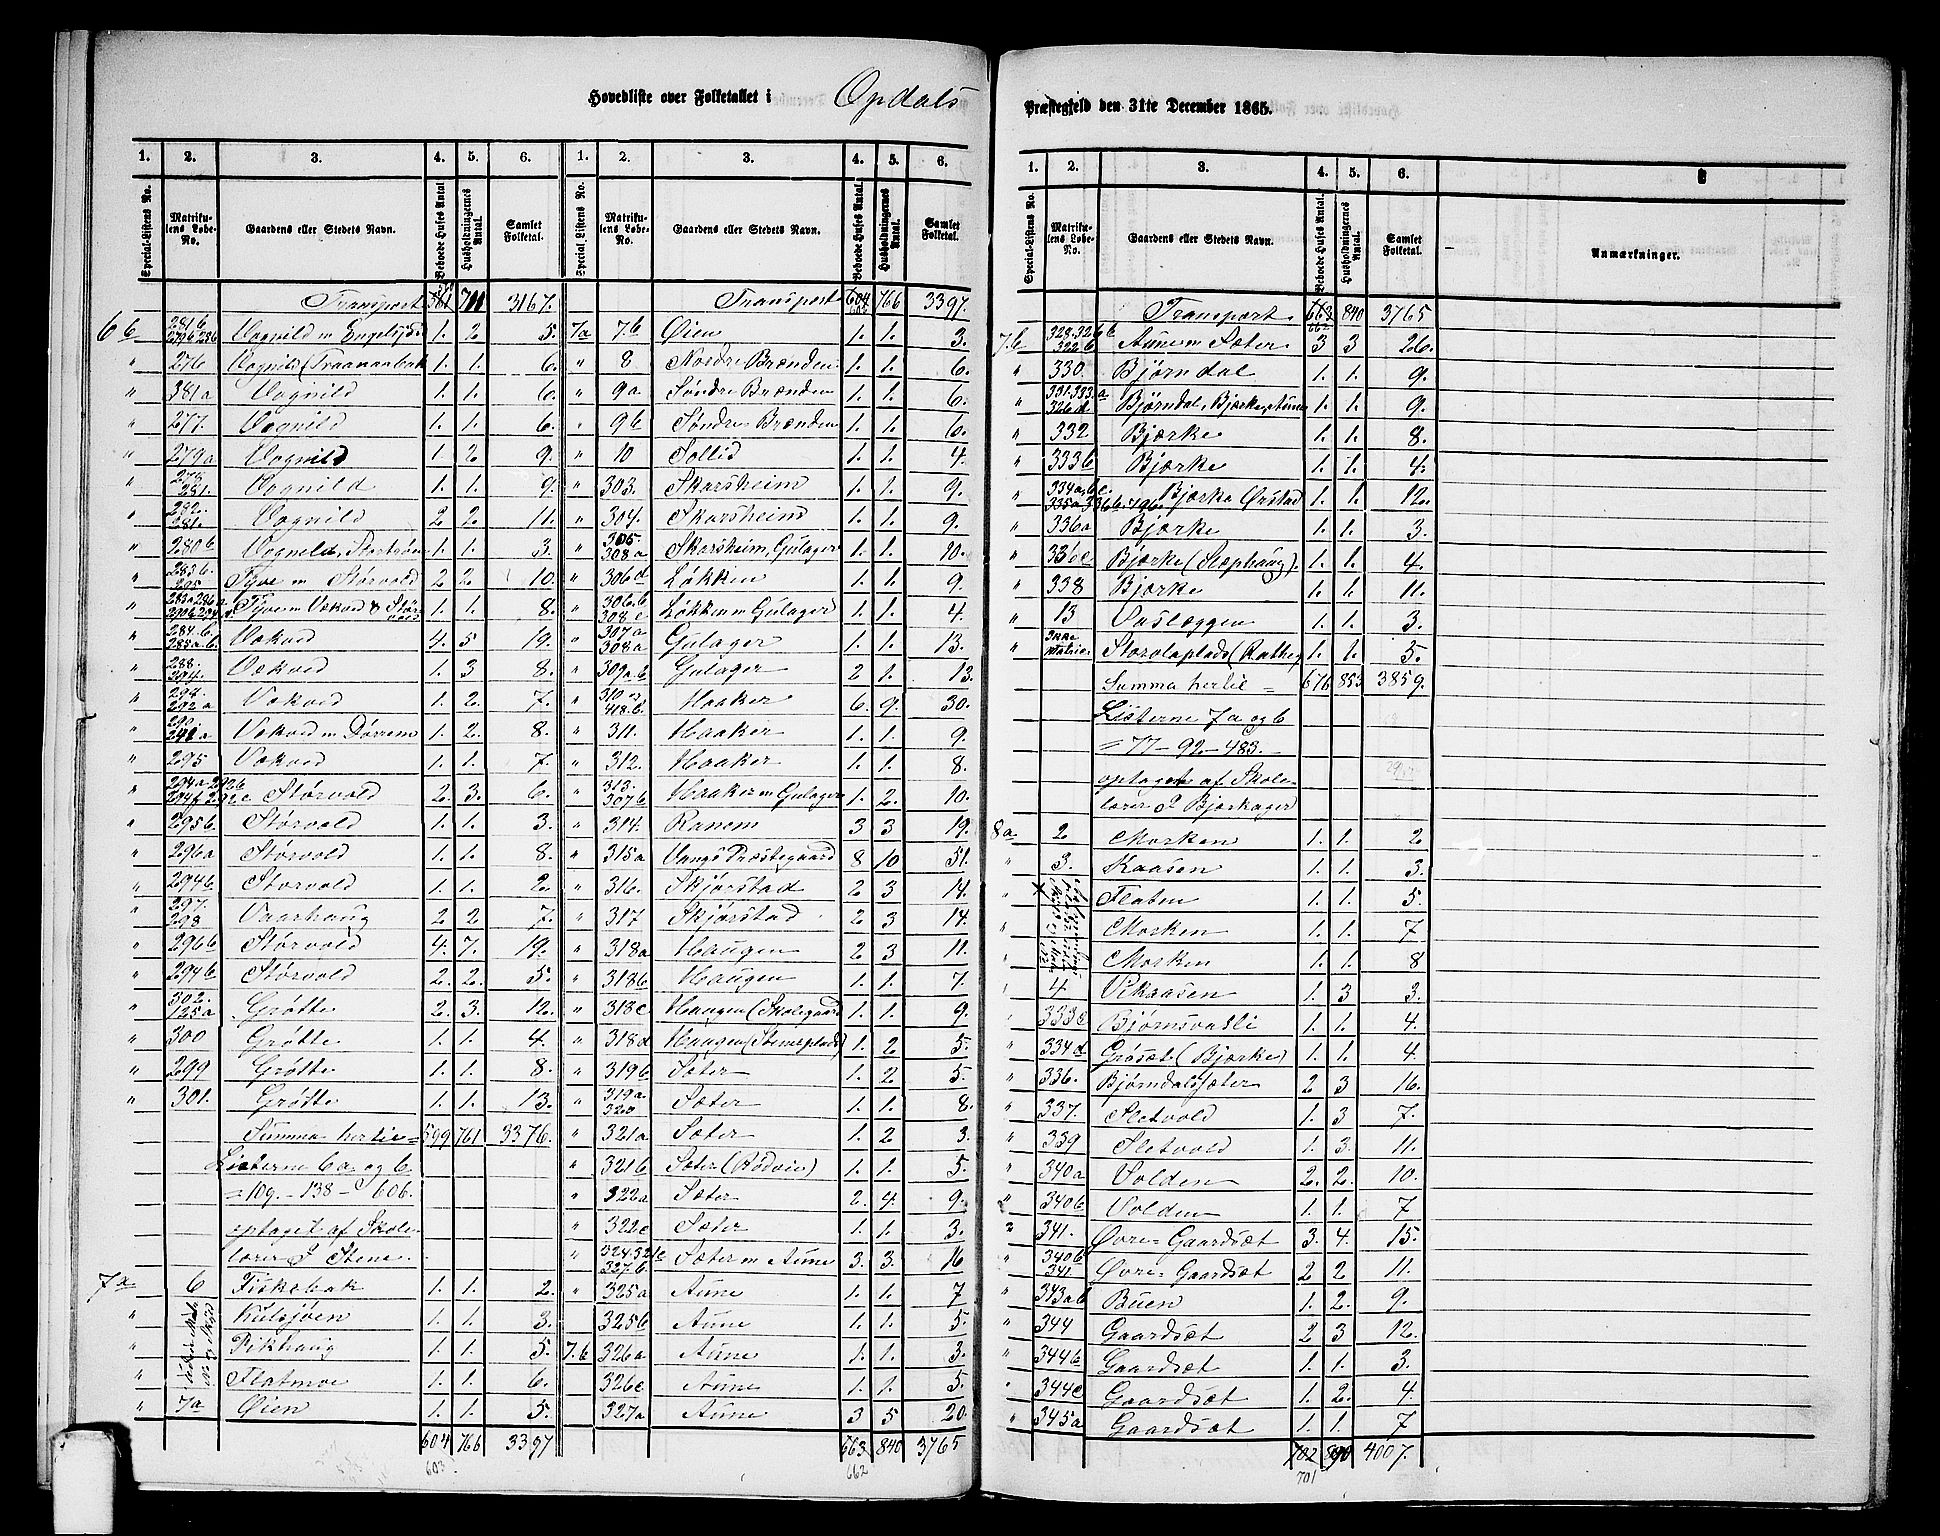 Hovedliste over Folketallet i Opdals
1. 2. 3. 4. 5. 6. 1. 2. 3. 4. 5. 6.
Special-Listens No. Matrikulens Løbe-No. Gaardens eller Stedets Navn. Beboede Huses Antal Husholdningernes Antal. Samlet Folketal.
Transport 711 3167.
6b 281b 279b 236 Vognild m Engelsjor 1. 2 5.
" 276 Vognild (Traananbak 1. 1. 6.
" 381a Vognild 1. 1. 6.
" 277. Vognild 1. 1. 6.
" 279a Vognild 1 2 9.
" 281. Vognild 1. 1. 9.
" 282. 281. Vognild 2 2. 11.
" 280b Vognild, Stortrøen 1. 1. 3.
" 283b. 295 Tjve m Størvold 2 2. 10.
" Tjvem Vækvd & Størvold 1. 1. 8.
" 284.b. 285a.b. Vækvd 4. 5 19.
" 288. 294. Vækvd 1. 3 8.
" 298. 292a Vekvd 1. 2. 7.
" 290. 291a Vekvd m Dørrem 1. 2. 8.
" 295 Vekvd 1. 1. 7.
" 294a-292b Størvold 2. 3. 6.
" 295b. Størvold 1. 1. 3.
" 296a Størvold 1. 1. 8.
" 294b Størvold 1. 1. 2.
" 297. 298 Vaarhaug 2 2 7.
" 296b Størvold 4. 7. 19.
" 294b Størvold 2. 2. 5.
" 302. 125a Grøtte 2. 3. 12.
" 300 Grøtte 1. 1. 4.
" 299 Grøtte 1. 1. 8.
" 301. Grøtte 1. 1. 13.
Summa hertil = 599 761 3376.
Listerne 6a og b
= 109. - 138 - 606.
optaget af Skole-
lærer I Stene.
7a 6 Fiskebæk 1. 1. 2.
" Kulsjøen 1. 1. 3.
" Pikhaug 1. 1. 5.
" Flatmoe 1. 1. 6.
" 7a Øien 1. 1. 5.
604 766 3397
603.
Special Listens No. Matrikulens Løbe-No. Gaardens eller Stedets Navn. Beboede Huses Antal. Husholdningernes Antal. Samlet Folketal.
Transport 604 603 766 3397.
7a 7.b Øien 1. 1. 3.
" 8 Nordre Brænden 1. 1. 6.
" 9a Søndre Brænden 1. 1. 6.
" 9b Søndre Brænden 1. 1. 6.
" 10 Sollid 1. 1. 4.
" 303. Skarsheim 1. 1. 9.
" 304. Skarsheim 1. 1. 9.
" 305 308a Skarsheim, Gulager 1. 1. 10.
" 306d Løkken 1. 1. 9.
" 306.b 308c Løkken m Gulager 1. 1. 4.
" 307a 308a Gulager 1. 1. 13.
" 309a.b Gulager 2 1. 13
" 310 og 418.b. Haaker 6. 9. 30.
" 311. Haaker 1. 1. 9.
" 312. Haaker 1. 1. 8.
" 313. 307b Haaker m Gulager 1. 2. 10.
" 314. Ranem 3 3 19.
" 315a Vangs Præstegaard 8 10 51.
" 316. Skjørstad 2 3 14.
" 317 Skjørstad 2 3 14.
" 318a Haugen 2 3 11.
" 318b Haugen 1. 1. 7.
" 318c Haugen (Skolegaard 1. 1. 9.
" 318d Haugen (Stensplads) 1. 2 5.
" 319b Sæter 1. 2 5.
" 319a. 320 Sæter 1. 1. 8.
" 321a Sæter 1. 2 3.
" 321b Sæter (Rødvei) 1. 1. 5.
" 322a Sæter 2. 4. 9.
" 322c Sæter 1. 1. 3.
" 324.321c 327.b. Sæter m Aune 3. 3. 16
" 325a Aune 1. 1. 7
325b Aune 1. 1. 5.
7.b 326a Aune 1. 1. 3.
326c Aune 1. 1. 5.
327a Aune 3 5 20.
663. 840 3765
662
Præstegjeld den 31te December 1865.
1. 2. 3. 4. 5. 6.
Special-Listens No. Matrikulens Løbe-No. Gaardens eller Stedets Navn. Beboede Huses Antal. Husholdningernes Antal. Samlet Folketal. Anmærkninger.
Transport 663 662 840 3765
7.b 328.326b 322b Aune m Sæter 3 3 26.
" 330. Bjørndal 1. 1. 9.
" 331-333.a 326d Bjørndal, Bjerke, Aune 1. 1. 9.
" 332 Bjærke 1. 1. 8.
" 333b Bjærke 1. 1. 4.
" 334a,b,c. 335a-336b.496. Bjærke Ørstad 1. 1. 12.
" 336a Bjærke 1. 1. 3.
" 336c Bjærke (Stephaug). 1. 1. 4.
" 338 Bjærke 1. 1. 11.
" 13 Vaslæggen 1. 1. 3.
" Ikke matric. Storolaplads (Rathe 1. 1. 5.
Summa hertil = 676 853 3859.
Listerne 7a og b
= 77 - 92 - 483.
optaget af Skole-
lærer I Bjørkager
8a 2 Morken 1. 1. 2
" 3. Kaasen 1. 1. 3.
" Flaten 1. 1. 5.
" Morken 1. 1. 7
" Morken 1. 1. 8
" 4 Vekaasen 1. 3 3.
" 333c Bjørnsvasli 1. 1. 4.
" 334d Grøsæt (Bjærke) 1. 1. 4.
" 336. Bjørndalsæter 2 3 16.
" 337. Sletvold 1. 3 7.
" 339 Sletvold 1. 3. 11.
" 340a Volden 2. 2. 10.
" 340b Volden 1. 1. 7
" 341. Øvre-Gaardsæt 3. 4. 15.
" 340b 341. Øvre-Gaardsæt 2 2 11.
" 343ab Buen 1. 2. 9.
" 344 Gaardsæt 2 3 12.
" 344b Gaardsæt 1. 1. 3.
" 344c Gaardsæt 1. 2. 4.
" 345a Gaardsæt 1. 1. 7
702 890 4007.
701